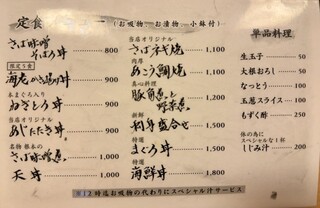 定食メニュー(お吸物 お漬物 小鉢付)
さば味噌
そぼろ丼 800
限定5食
海老かき揚げ丼 900
本まぐろ入り
ねぎとろ丼 900
当店オリジナル
あじたたき丼 900
名物 根本の
さば味噌煮 1,000
天丼 1,000
当店オリジナル
さばネギ焼 1,100
肉厚
あこう鯛焼 1,100
真心料理
豚角煮と
野菜煮 1,200
新鮮
刺身盛合せ 1,500
特選
まぐろ丼 1,500
特選
海鮮丼 1,800
単品料理
生玉子 50
大根おろし 150
なっとう 100
玉葱スライス 100
もずく酢 250
体の為に
スペシャルな1杯
しじみ汁 200
※12時迄お吸物の代わりにスペシャル汁サービス